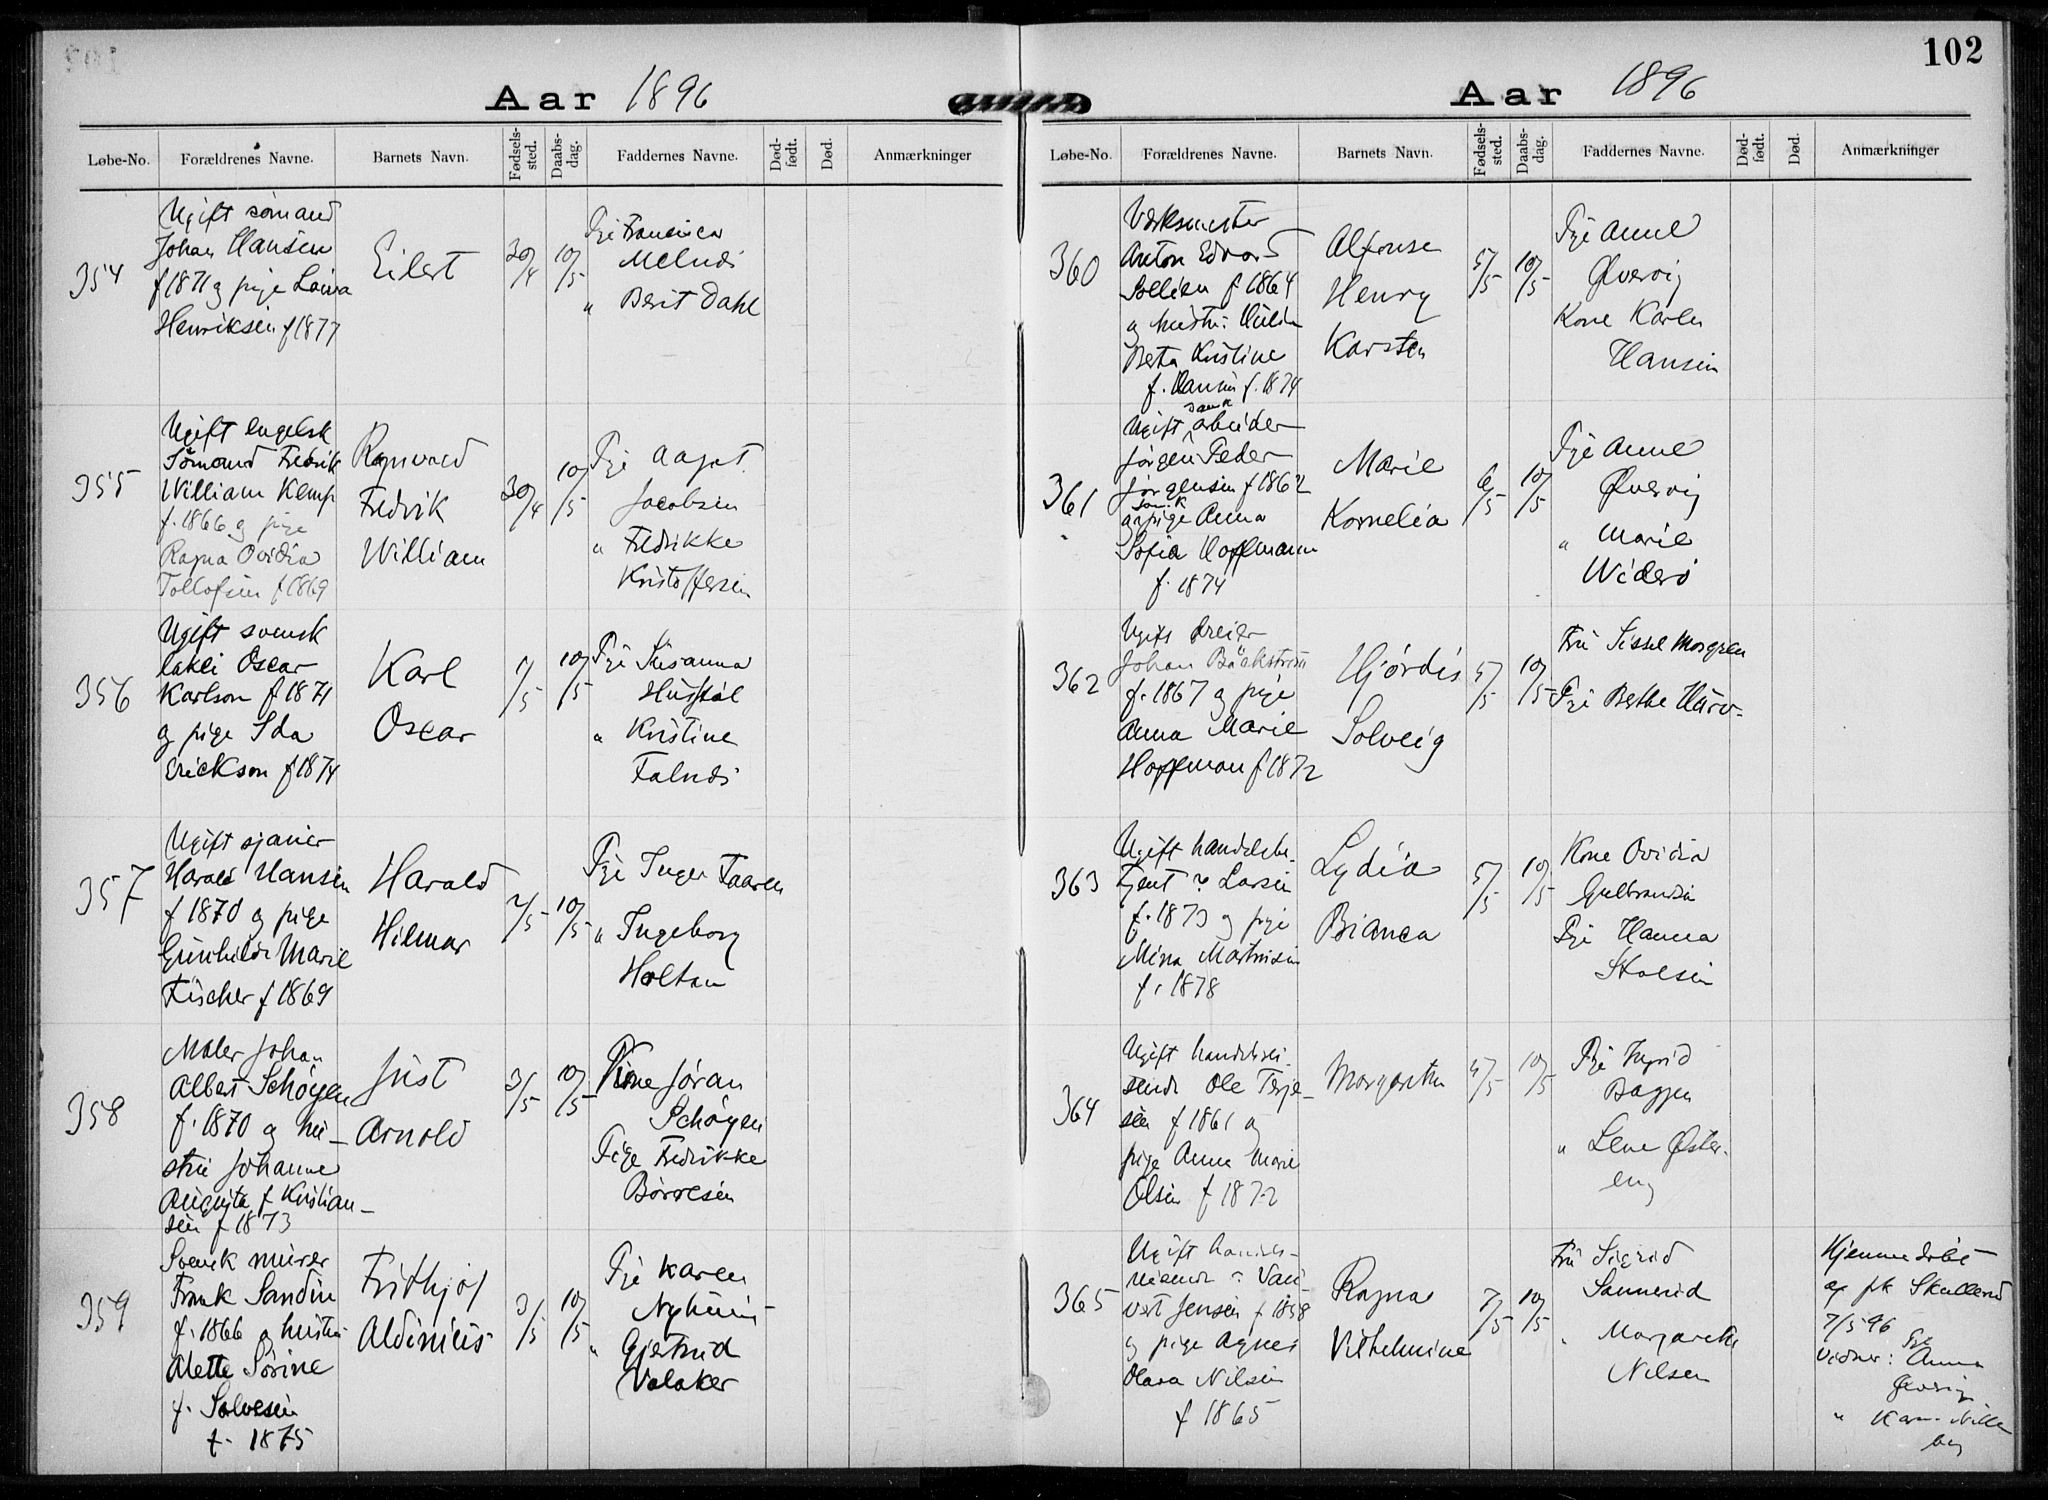 102
Aar 1896
Løbe-No. Forældrenes Navne. Barnets Navn. Fødsels-sted. Daabs-dag. Faddernes Navne. Død-født. Død. Anmærkninger
354
Ugift sømand
Johan Hansen
f 1871 og pige
Henriksen f 1877
Eilert
30/4
10/5
Pige
" Berit Dahl
355
Ugift engelsk
Sömand Fredrik
William Kemp
f. 1866 og pige
Ragna Ovidia
Tollofsen f 1869
Ragnvald
Fredrik
William
30/4
10/5
Pige Aagot
Jacobsen
" Fredrikke
Kristoffersen
356
Ugift svensk
lakei Oscar
Karlson f 1871
og pige Ida
Erickson f 1874
Karl
Oscar
1/5
10/5
Pige Susanna
" Kristine
357
Ugift
Harald Hansen
f 1870 og pige
Gunhilda Marie
Fischer f 1869
Harald
Hilmar
2/5
10/5
Pige Inger Faaren
" Ingeborg
Holtan
358
Maler Johan
Albert Schøyen
f. 1870 og hu-
stru Johanne
Augusta f Kristian-
sen f 1873
Just
Arnold
3/5
10/5
Kone Jöran
Schøyen
Pige Fredrikke
Börresen
359
Svensk murer
Frank Sandin
f. 1866 og hustru
Alette Sörine
f. Solvesen
f. 1875
Frithjof
Aldinius
3/5
10/5
Pige Karen
" Gjertrud
Valaker
Aar 1896
Løbe-No. Forældrenes Navne. Barnets Navn. Fødsels-sted. Daabs-dag. Faddernes Navne. Død-født. Død. Anmærkninger
360
Værksmester
Anton Edvard
f 1864
og hustru Hulda
Berta Kristine
f. Hansen f. 1874
Alfonse
Henry
Karsten
5/5
10/5
Pige Anne
Øvervig
Kone Karen
Hansen
361
Ugift arbeider
Jørgen Peder
Jørgensen f 1862
og pige Anna
Sofia Hoffmann
f. 1874
Marie
Kornelia
6/5
10/5
Pige Anne
Øvervig
" Marie
Widerö
362
Ugift dreier
Johan Bäckström
f. 1867 og pige
Anna Marie
Hoffman f 1872
Hjördis
Solveig
5/5
10/5
Fru Sissel Morgren
Pige Berthe
363
Ugift handelsbe-
tjent ? Larsen
f. 1873 og pige
Mina Martinsen
f. 1878
Lydia
Bianca
5/5
10/5
Kone Ovidia
Gulbrandsen
Pige Hanna
Stolsen
364
Ugift handelsrei-
sende Ole Terje-
sen f 1861 og
pige Anna Marie
Olsen f 1872
Margaretha
4/5
10/5
Pige Ingrid
Baggen
" Lene Øster-
eng
365
Ugift handels-
Jensen f 1858
og pige Agnes
Olava Nilsen
f 1865
Ragna
Vilhelmine
7/5
10/5
Fru Sigrid
Sannerud
" Margarethe
Nilsen
Hjemmedöbt
af frk Skullerud
7/5 96
Vidner: Pige Anna
Øvervig